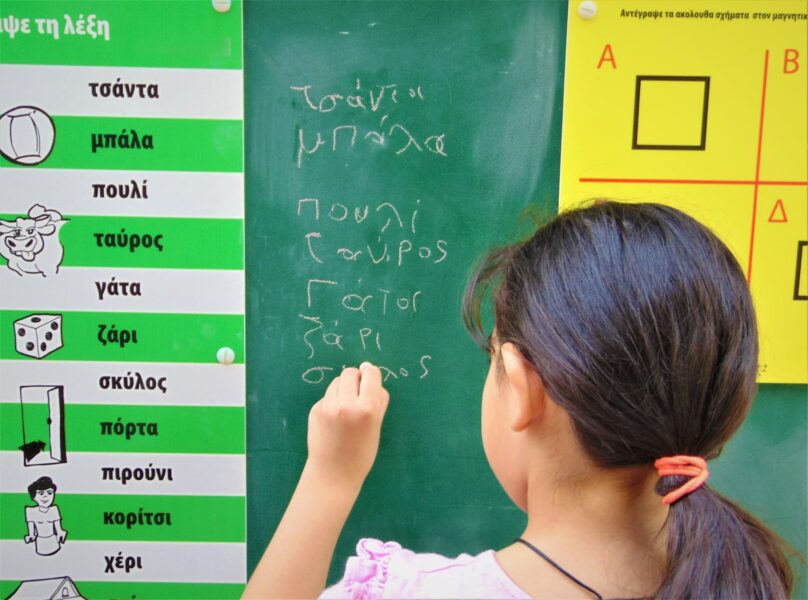 τη λέξη
τσάντα
μπάλα
πουλί
ταύρος
γάτα
ζάρι
σκύλος
πόρτα
πιρούνι
κορίτσι
χέρι
τσάντα
μπάλα
πουλί
ταύρος
Γάτα
ζάρι
Αντέγραψε τα ακολουθα σχήματα στον
Α
Β
Δ